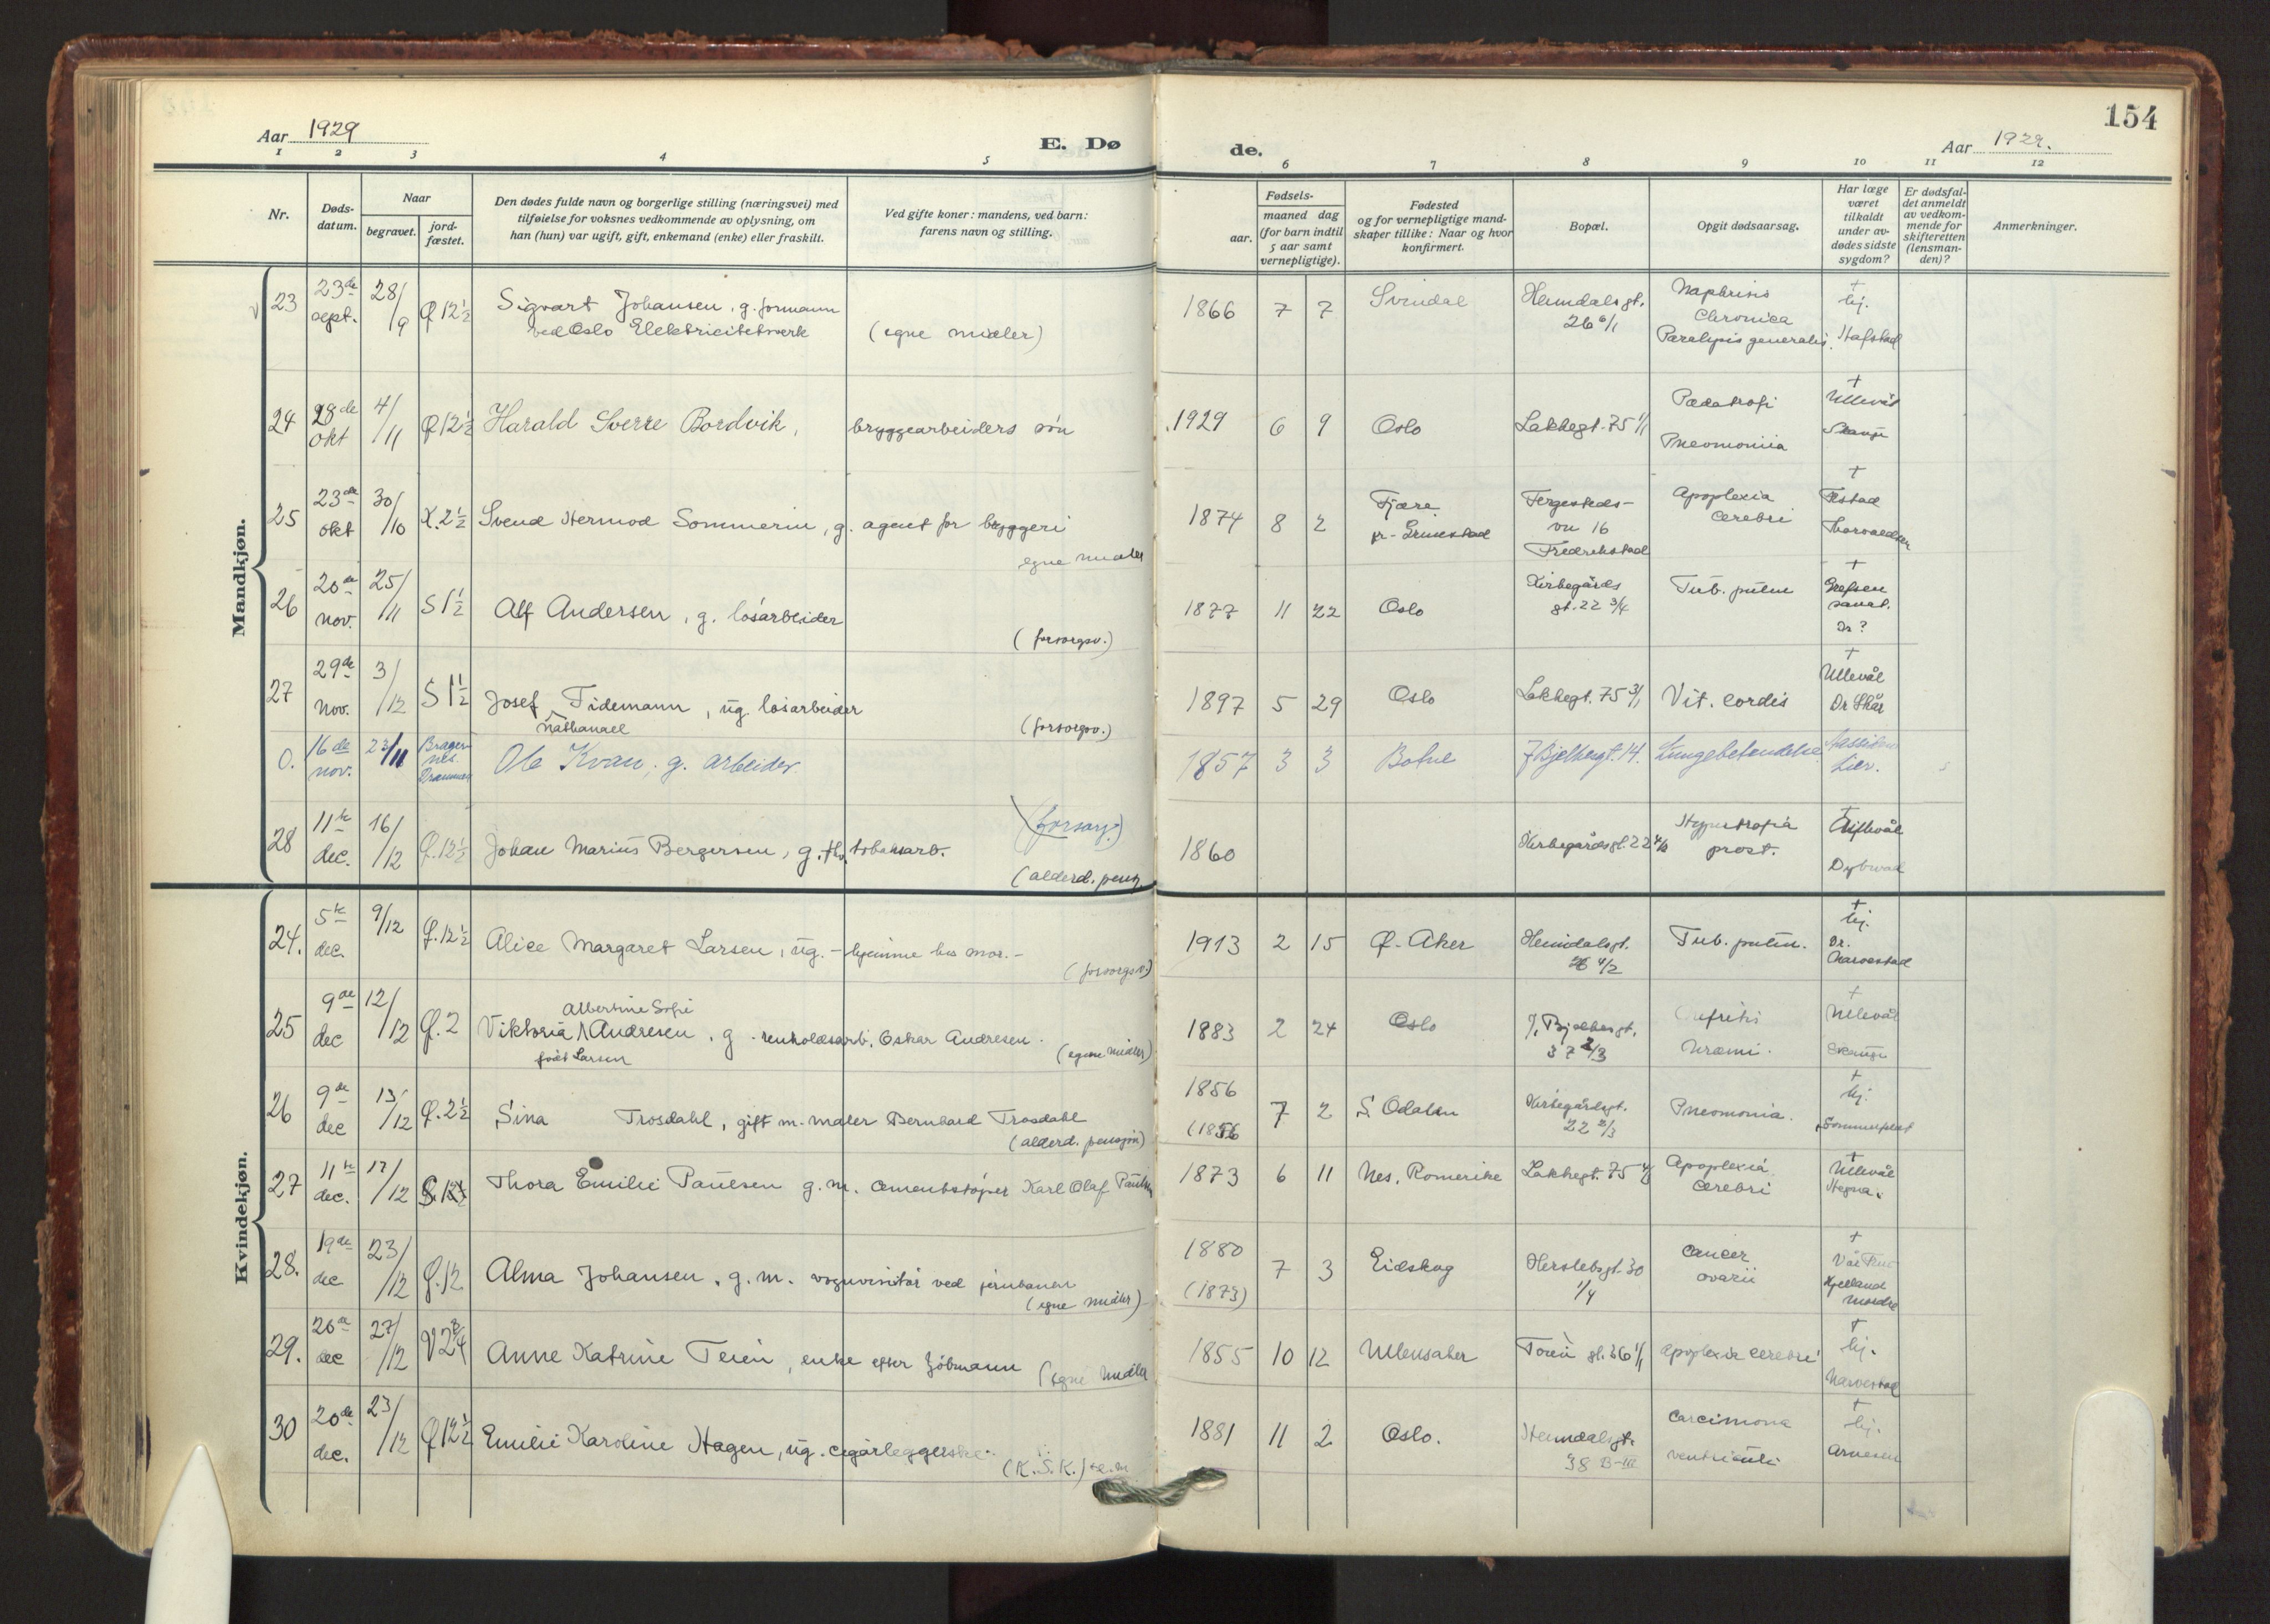 154
Aar 1929
E. Dø
de.
Aar 1929.
1 2 3 4 5 6 7 8 9 10 11 12
Nr.
Døds-
datum.
Naar
begravet.
jord-
fæstet.
Den dødes fulde navn og borgerlige stilling (næringsvei) med
tilføielse for voksnes vedkommende av oplysning, om
han (hun) var ugift, gift, enkemand (enke) eller fraskilt.
Ved gifte koner: mandens, ved barn:
farens navn og stilling.
Fødsels-
aar.
maaned dag
(for barn indtil
5 aar samt
vernepligtige).
Fødested
og for vernepligtige mand-
skaper tillike: Naar og hvor
konfirmert.
Bopæl.
Opgit dødsaarsag.
Har læge
været
tilkaldt
under av-
dødes sidste
sygdom?
Er dødsfal-
det anmeldt
av vedkom-
mende for
skifteretten
(lensman-
den)?
Anmerkninger.
Mandkjøn.
23 23de sept. 28/9 Ø 12½ Sigvart Johansen, g. formann
ved Oslo Elektricitetsverk (egne midler)
1866 7 7 Svindal Heimdalsgt. 26 6/1 Chronica Paralysis generalis. + hj. Hafstad
24 28de okt 4/11 Ø 12½ Harald Sverre Bordvik, bryggearbeiders søn
1929 6 9 Oslo Lakkegt. 75 1/1 Pædatrofi Pneomoniia + Ullevål
25 23de okt 30/10 K. 2½ Svend Hermod Sommerin, g. agent for bryggeri
egne midler
1874 8 2 Fjære pr. Grimestad Fergesteds-
vn 16
Fredrikstad Apoplexia cerebri +
26 20de nov. 25/11 S 1½ Alf Andersen, g. løsarbeider
(forsorgsv.)
1877 11 22 Oslo Kirkegårds
gt. 22 3/4 Tub. pulm + Grefsen
sanat.
Dr ?
27 29de nov. 3/12 S 1½ Josef Tidemann, ug. løsarbeider
Nathanael (forsorgsv.)
1897 5 29 Oslo Lakkegt. 75 3/1 Vit. cordis + Ullevål
Dr Skår
0. 16de nov. 23/11 Bragernes Drammen Ole Kvan, g. arbeider.
(forsorg.)
1857 3 3 Botne J Bjelkesgt. 14. Lungebetendelse Lier.
28 11te dec. 16/12 Ø. 12½ Johan Marius Bergersen, g. fhv. tobaksarb.
(alderd. pens.
1860 Kirkegårdsgt. 22 Hypertrofia prost. + Ullevål
Dybwad
Kvindekjøn.
24. 5te dec. 9/12 Ø. 12½ Alice Margaret Larsen, ug. - hjemme hos mor. -
(forsorgsv.)
1913 2 15 Ø. Aker Heimdalsgt.
26 4/2 Tub. pulm. + hj.
Dr.
Narvestad
25 9de dec 12/12 Ø. 2 Albertine Sofie
Viktoria Andresen, g. renholdsarb. Oskar Andresen.
født Larsen (egne midler)
1883 2 24 Oslo J. Bjelkesgt.
37 2/3 Uræmi. + Ullevål
26 9de dec 13/12 Ø. 2½ Sina Trosdahl, gift m. maler Bernhard Trosdahl
(alderd. pensjon)
1856
(1856 7 2 S. Odalen Kirkegårdsgt.
22 2/3 Pneomonia. + hj.
Sommerfeldt
27 11te dec. 17/12 Thora Emilie Paulsen g. m. cementstøper Karl Olaf Paulsen
1873 6 11 Nes, Romerike Lakkegt. 75 Apoplexia cerebri + Ullevål
28. 19de dec 23/12 Ø. 12 Alma Johansen, g. m. vognvisitør ved jernbanen
(egne midler)
1880
(1873) 7 3 Eidskog Herslebsgt. 30
1/4 Cancer ovarii + Vår Frue
Kjelland
Mordre
29. 20de dec 27/12 V 2 Anne Katrine Teien, enke efter jobmann (egne midler
1855 10 12 Ullensaker Toiengt. 36 1/1 Apoplexia cerebri + hj.
Narvestad
30 20de dec. 23/12 Ø 12½ Emilie Karoline Hagen, ug. cigarleggerske.
(K.S.K.)
1881 11 2 Oslo. Heimdalsgt.
38 B-III Carcinona ventriculi + hj.
Arnesen